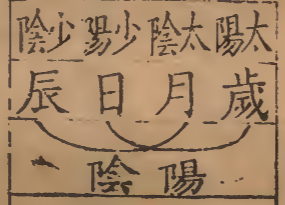 太陽 太陰 少陽 少陰
歲 月 日 辰
陽 陰